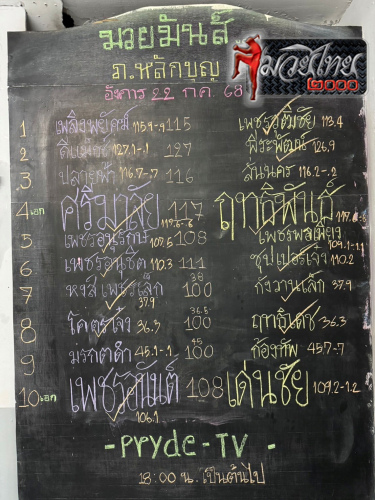 มวยมันส์
ภ.หลักบุญ
อังคาร 22 กค. 68
มวยไทย
2000
1 เพลิงพยัคฆ์ 115.9-.9 115 เพชรวุฒิชัย 113.4
2 127.1-.1 127 พีระพัฒน์ 126.9
3 116.7-.7 116 ลั่นนคร 116.2-.2
4 เอก ศรีมาชัย 117.6-.6 117 ฤทธิพันธ์
5 เพชรอนุรักษ์ 107.5 108 เพชรพลเมือง 109.1-1.1
6 เพชรอนุชิต 110.3 111 ซุปเปอร์เจ๋ง 110.2
7 หงส์เพชรเล็ก 37.9 38 100 กังวานเล็ก 37.9
8 โคตรโจ๋ง 36.3 36.5 100 ฤทธิเดช 36.3
9 มรกตดำ 45.1-.1 45 100 ก้องภพ 45.7-.7
10 เอก เพชรอนันต์ 106.1 108 เด่นชัย 109.2-1.2
- Pryde - TV -
18:00 น. เป็นต้นไป